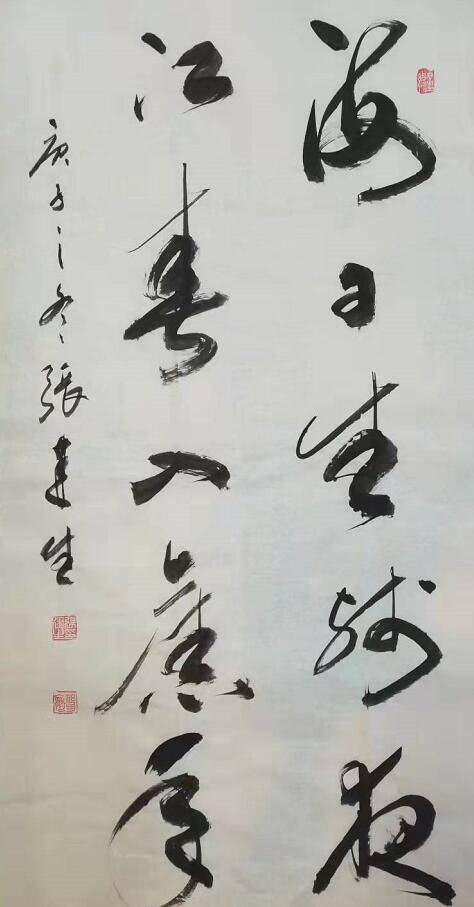 海日生残夜
江春入旧年
庚子之冬張建生